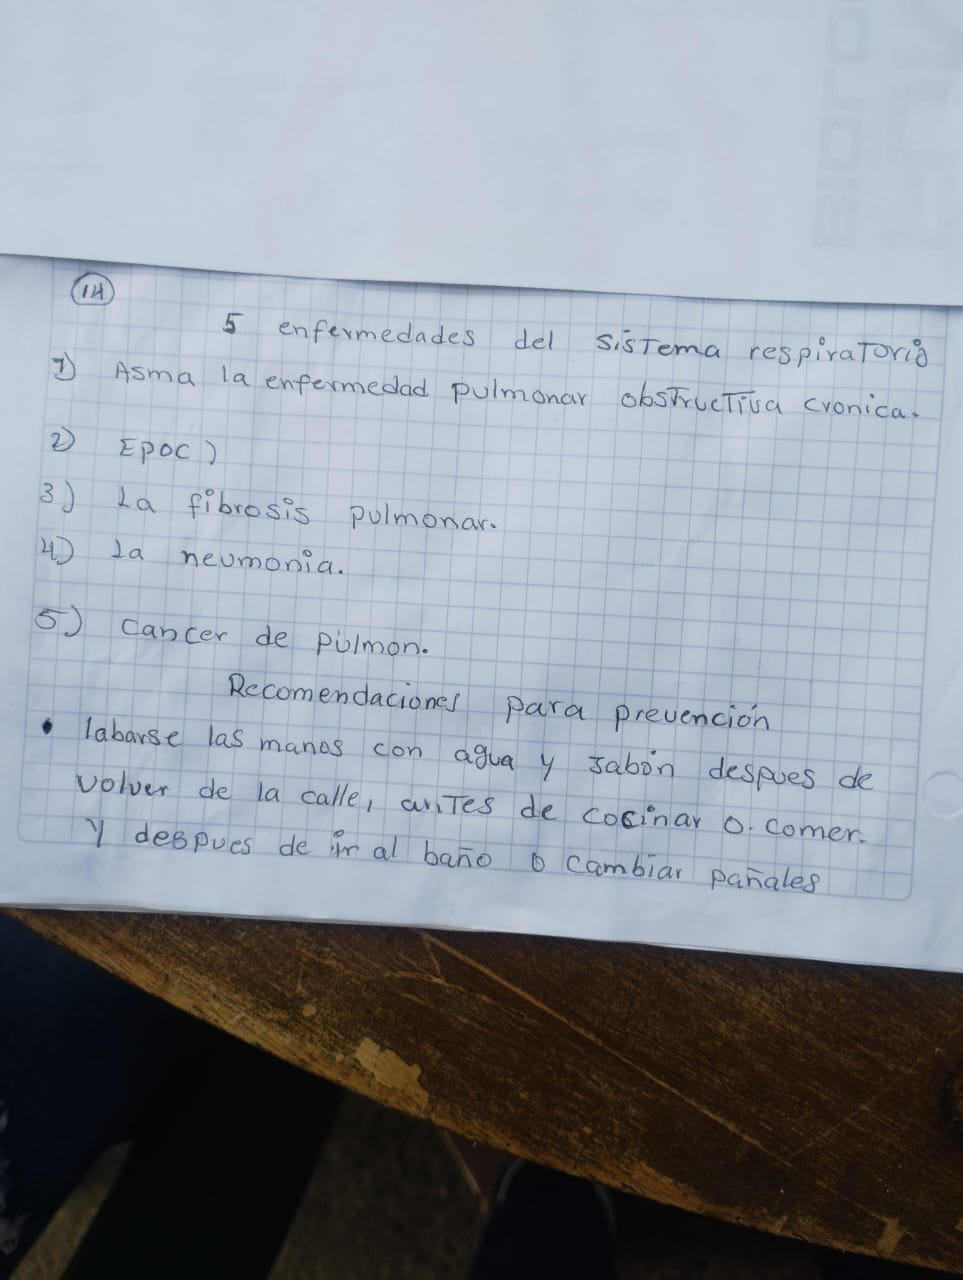 14
5 enfermedades del sistema respiratorio
1) Asma la enfermedad pulmonar obstructiva cronica.
2) EPOC)
3) La fibrosis pulmonar.
4) La neumonia.
5) cancer de pulmon.
Recomendaciones para prevención
• labarse las manos con agua y jabón despues de
volver de la calle, antes de cocinar o. comer.
y despues de ir al baño o cambiar pañales